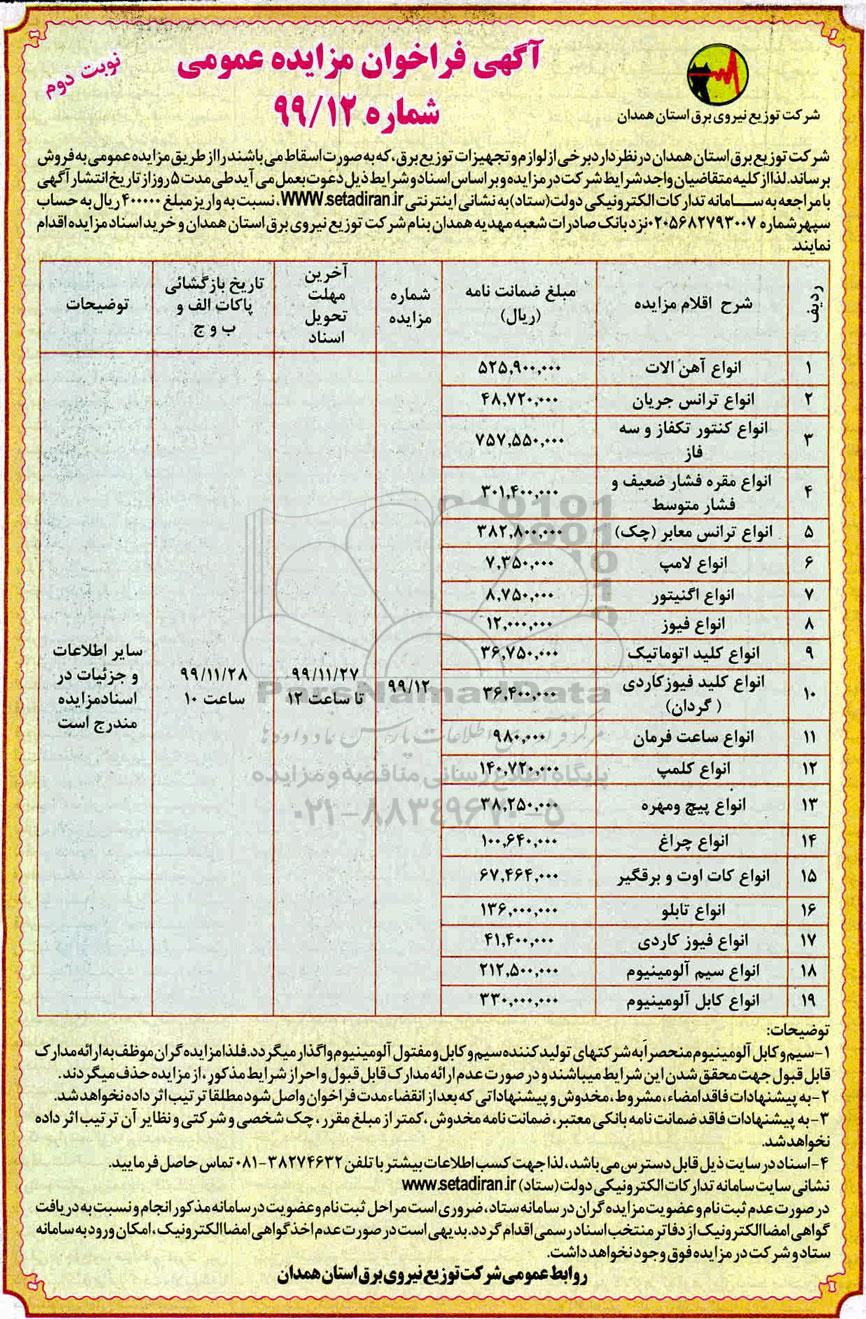 آگهی فراخوان مزایده عمومی
شماره ۹۹/۱۲
نوبت دوم
شرکت توزیع نیروی برق استان همدان
شرکت توزیع برق استان همدان در نظر دارد برخی از لوازم و تجهیزات توزیع برق، که به صورت اسقاط می باشند را از طریق مزایده عمومی به فروش
برساند. لذا از کلیه متقاضیان واجد شرایط شرکت در مزایده و بر اساس اسناد و شرایط ذیل دعوت بعمل می آید طی مدت ۵ روز از تاریخ انتشار آگهی
با مراجعه به سامانه تدارکات الکترونیکی دولت (ستاد) به نشانی اینترنتی WWW.setadiran.ir، نسبت به واریز مبلغ ۴۰۰۰۰۰ ریال به حساب
سپهر شماره ۰۲۰۵۶۸۲۷۹۳۰۰۷ نزد بانک صادرات شعبه مهدیه همدان بنام شرکت توزیع نیروی برق استان همدان و خرید اسناد مزایده اقدام
نمایند.
ردیف | شرح اقلام مزایده | مبلغ ضمانت نامه (ریال) | شماره مزایده | آخرین مهلت تحویل اسناد | تاریخ بازگشائی پاکات الف و ب و ج | توضیحات
۱ | انواع آهن الات | ۵۲۵,۹۰۰,۰۰۰
۲ | انواع ترانس جریان | ۴۸,۷۲۰,۰۰۰
۳ | انواع کنتور تکفاز و سه فاز | ۷۵۷,۵۵۰,۰۰۰
۴ | انواع مقره فشار ضعیف و فشار متوسط | ۳۰۱,۴۰۰,۰۰۰
۵ | انواع ترانس معابر (چک) | ۳۸۲,۸۰۰,۰۰۰
۶ | انواع لامپ | ۷,۳۵۰,۰۰۰
۷ | انواع اگنیتور | ۸,۷۵۰,۰۰۰
۸ | انواع فیوز | ۱۲,۰۰۰,۰۰۰
۹ | انواع کلید اتوماتیک | ۳۶,۷۵۰,۰۰۰
۱۰ | انواع کلید فیوزکاردی (گردان) | ۳۶,۴۰۰,۰۰۰
۱۱ | انواع ساعت فرمان | ۹۸۰,۰۰۰
۱۲ | انواع کلمپ | ۱۴۰,۷۲۰,۰۰۰
۱۳ | انواع پیچ ومهره | ۳۸,۲۵۰,۰۰۰
۱۴ | انواع چراغ | ۱۰۰,۶۴۰,۰۰۰
۱۵ | انواع کات اوت و برقگیر | ۶۷,۴۶۴,۰۰۰
۱۶ | انواع تابلو | ۱۳۶,۰۰۰,۰۰۰
۱۷ | انواع فیوز کاردی | ۴۱,۴۰۰,۰۰۰
۱۸ | انواع سیم آلومینیوم | ۲۱۲,۵۰۰,۰۰۰
۱۹ | انواع کابل آلومینیوم | ۳۳۰,۰۰۰,۰۰۰
۹۹/۱۲
۹۹/۱۱/۲۷
تا ساعت ۱۲
۹۹/۱۱/۲۸
ساعت ۱۰
سایر اطلاعات
و جزئیات در
اسنادمزایده
مندرج است
ParsNamadData
پایگاه اطلاع رسانی مناقصه و مزایده
۰۲۱-۸۸۳۴۹۶۷۰-۵
توضیحات:
۱-سیم و کابل آلومینیوم منحصراً به شرکتهای تولید کننده سیم و کابل و مفتول آلومینیوم واگذار میگردد. فلذا مزایده گران موظف به ارائه مدارک
قابل قبول جهت محقق شدن این شرایط میباشند و در صورت عدم ارائه مدارک قابل قبول و احراز شرایط مذکور، از مزایده حذف میگردند.
۲-به پیشنهادات فاقد امضاء، مشروط، مخدوش و پیشنهاداتی که بعد از انقضاء مدت فراخوان واصل شود مطلقا ترتیب اثر داده نخواهد شد.
۳-به پیشنهادات فاقد ضمانت نامه بانکی معتبر، ضمانت نامه مخدوش، کمتر از مبلغ مقرر، چک شخصی و شرکتی و نظایر آن ترتیب اثر داده
نخواهد شد.
۴-اسناد در سایت ذیل قابل دسترس می باشد، لذا جهت کسب اطلاعات بیشتر با تلفن ۳۸۲۷۴۶۳۲-۰۸۱ تماس حاصل فرمایید.
نشانی سایت سامانه تدارکات الکترونیکی دولت (ستاد) www.setadiran.ir
در صورت عدم ثبت نام و عضویت مزایده گران در سامانه ستاد، ضروری است مراحل ثبت نام و عضویت در سامانه مذکور انجام و نسبت به دریافت
گواهی امضا الکترونیک از دفاتر منتخب اسناد رسمی اقدام گردد. بدیهی است در صورت عدم اخذ گواهی امضا الکترونیک، امکان ورود به سامانه
ستاد و شرکت در مزایده فوق وجود نخواهد داشت.
روابط عمومی شرکت توزیع نیروی برق استان همدان